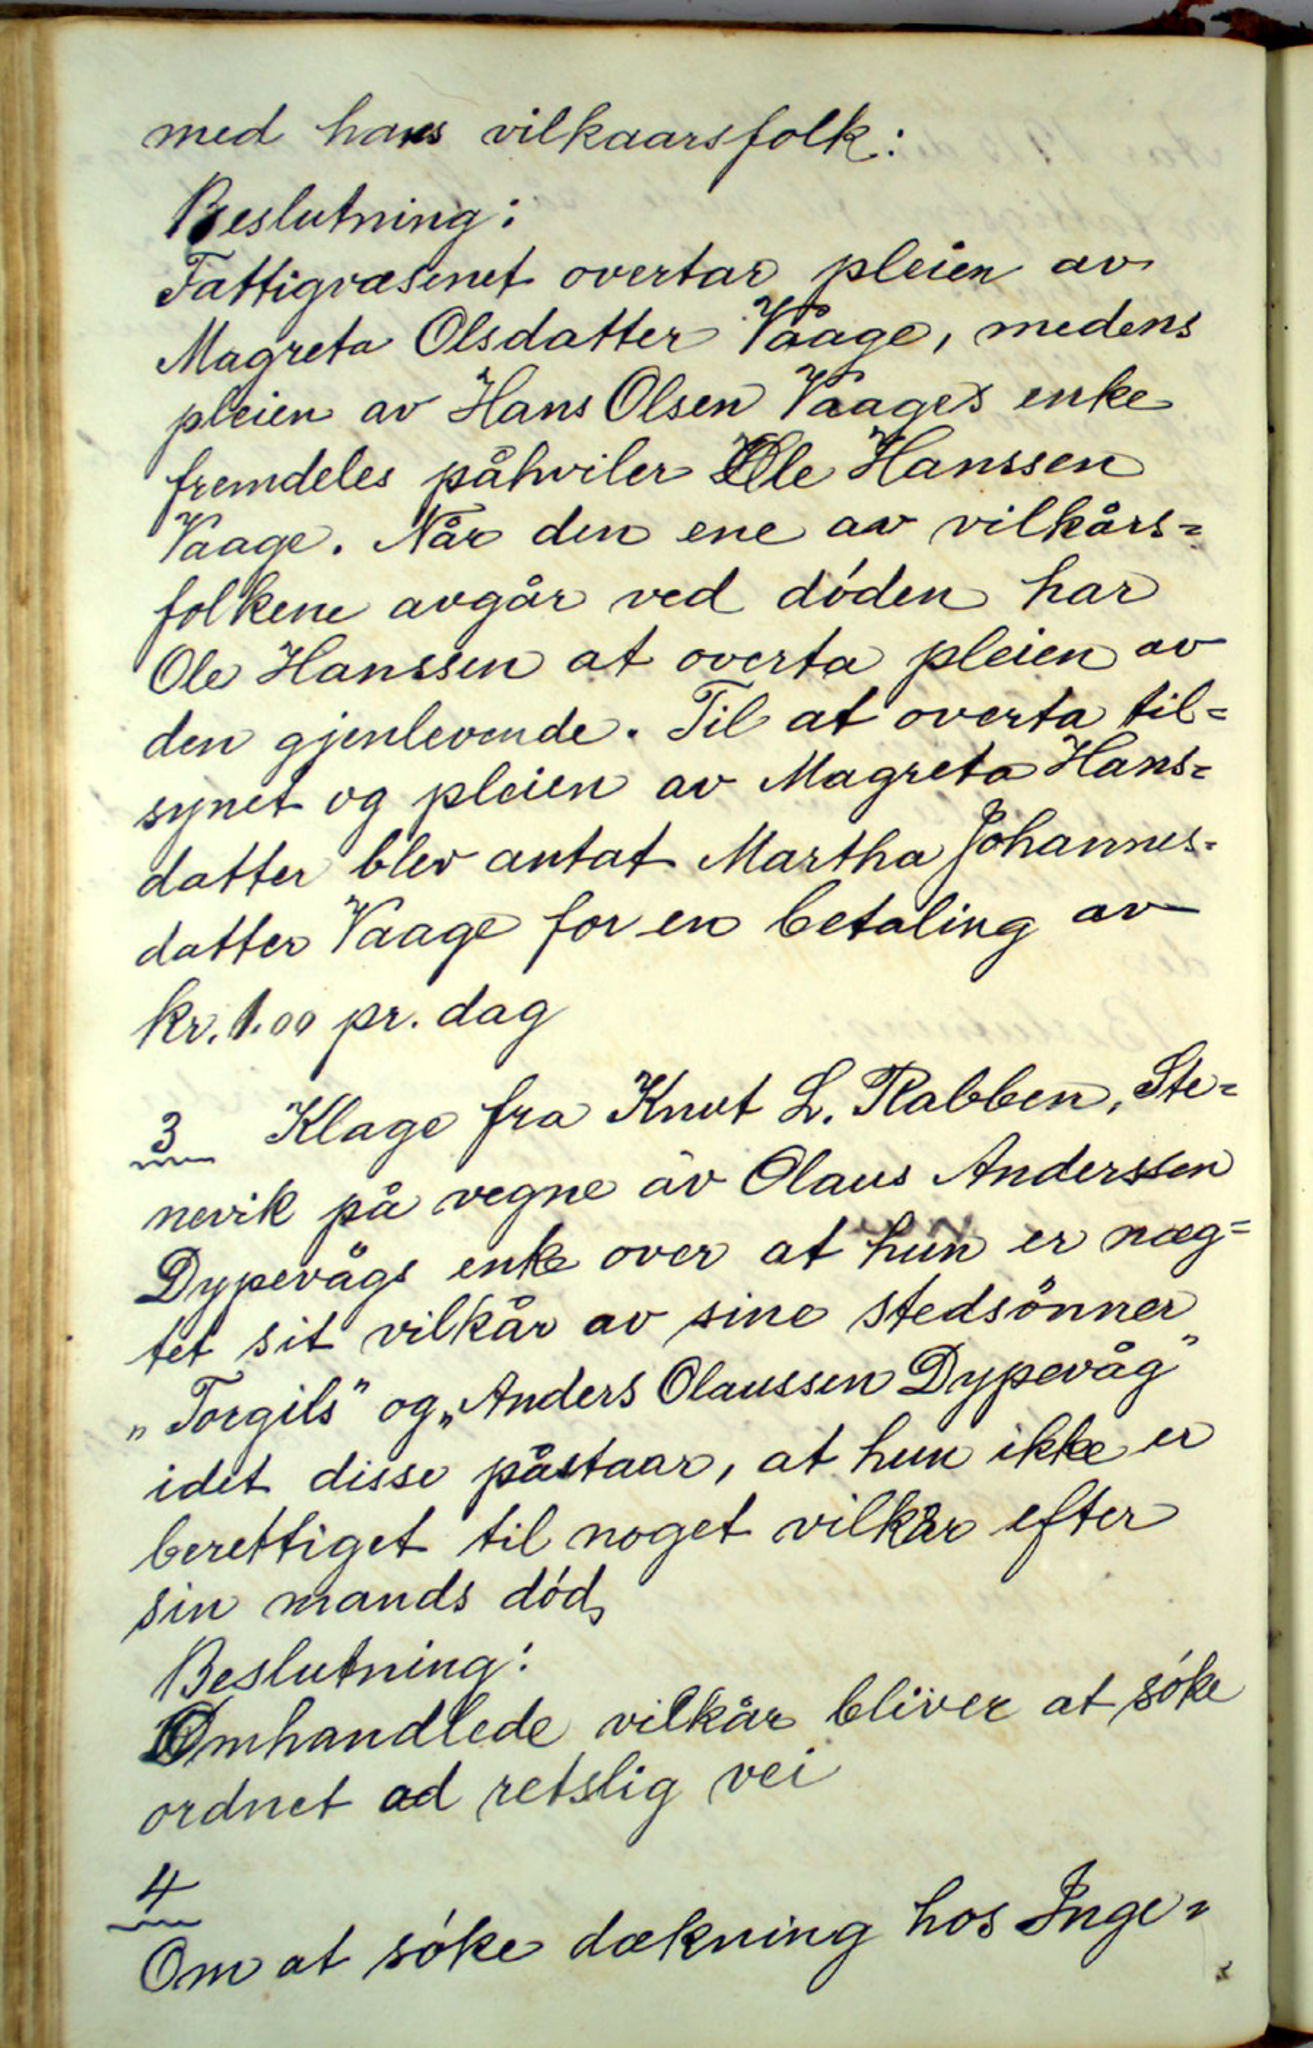 med hans vilkaarsfolk:
Beslutning:
Fattigvæsenet overtar pleien av
Magreta Olsdatter Vaage, medens
pleien av Hans Olsen Vaages enke
fremdeles påhviler Ole Hanssen
Vaage. Når den ene av vilkårs=
folkene avgår ved döden har
Ole Hanssen at overta pleien av
den gjenlevende. Til at overta til=
synet og pleien av Magreta Hans=
datter blev antat Martha Johannes=
datter Vaage for en betaling av
kr. 1.00 pr. dag
3 Klage fra Knut L. Rabben, Ste=
nevik på vegne av Olaus Anderssen
Dypevågs enke over at hun er næg=
tet sit vilkår av sine stedsönner
„Torgils" og „Anders Olaussen Dypevåg"
idet disse påstaar, at hun ikke er
berettiget til noget vilkår efter
sin mands död,
Beslutning:
Omhandlede vilkår bliver at söke
ordnet ad retslig vei
4
Om at söke dækning hos Inge=